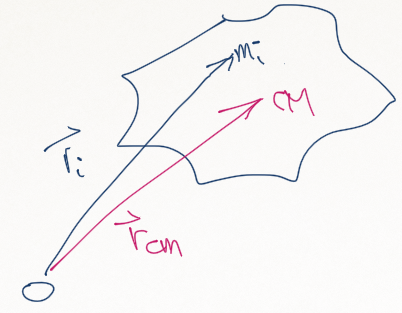 mᵢ
CM
r⃗ᵢ
r⃗cm
O